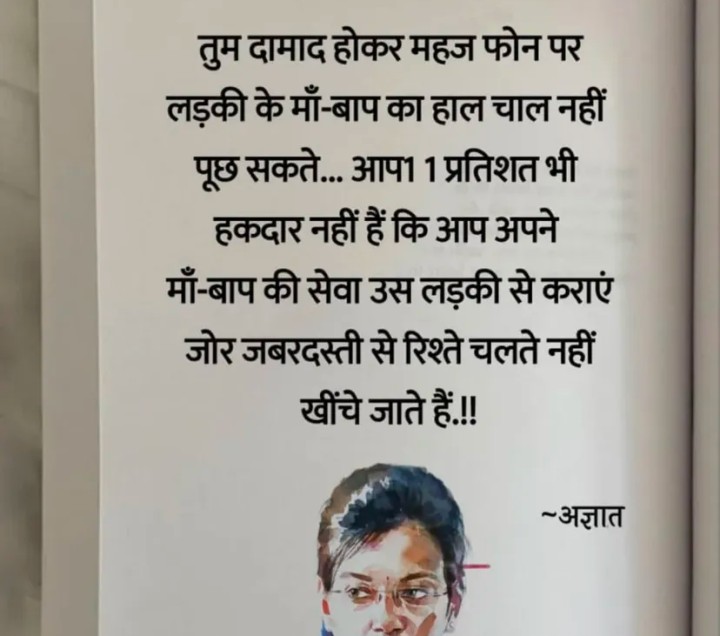 तुम दामाद होकर महज फोन पर
लड़की के माँ-बाप का हाल चाल नहीं
पूछ सकते... आप1 1 प्रतिशत भी
हकदार नहीं हैं कि आप अपने
माँ-बाप की सेवा उस लड़की से कराएं
जोर जबरदस्ती से रिश्ते चलते नहीं
खींचे जाते हैं.!!
~अज्ञात